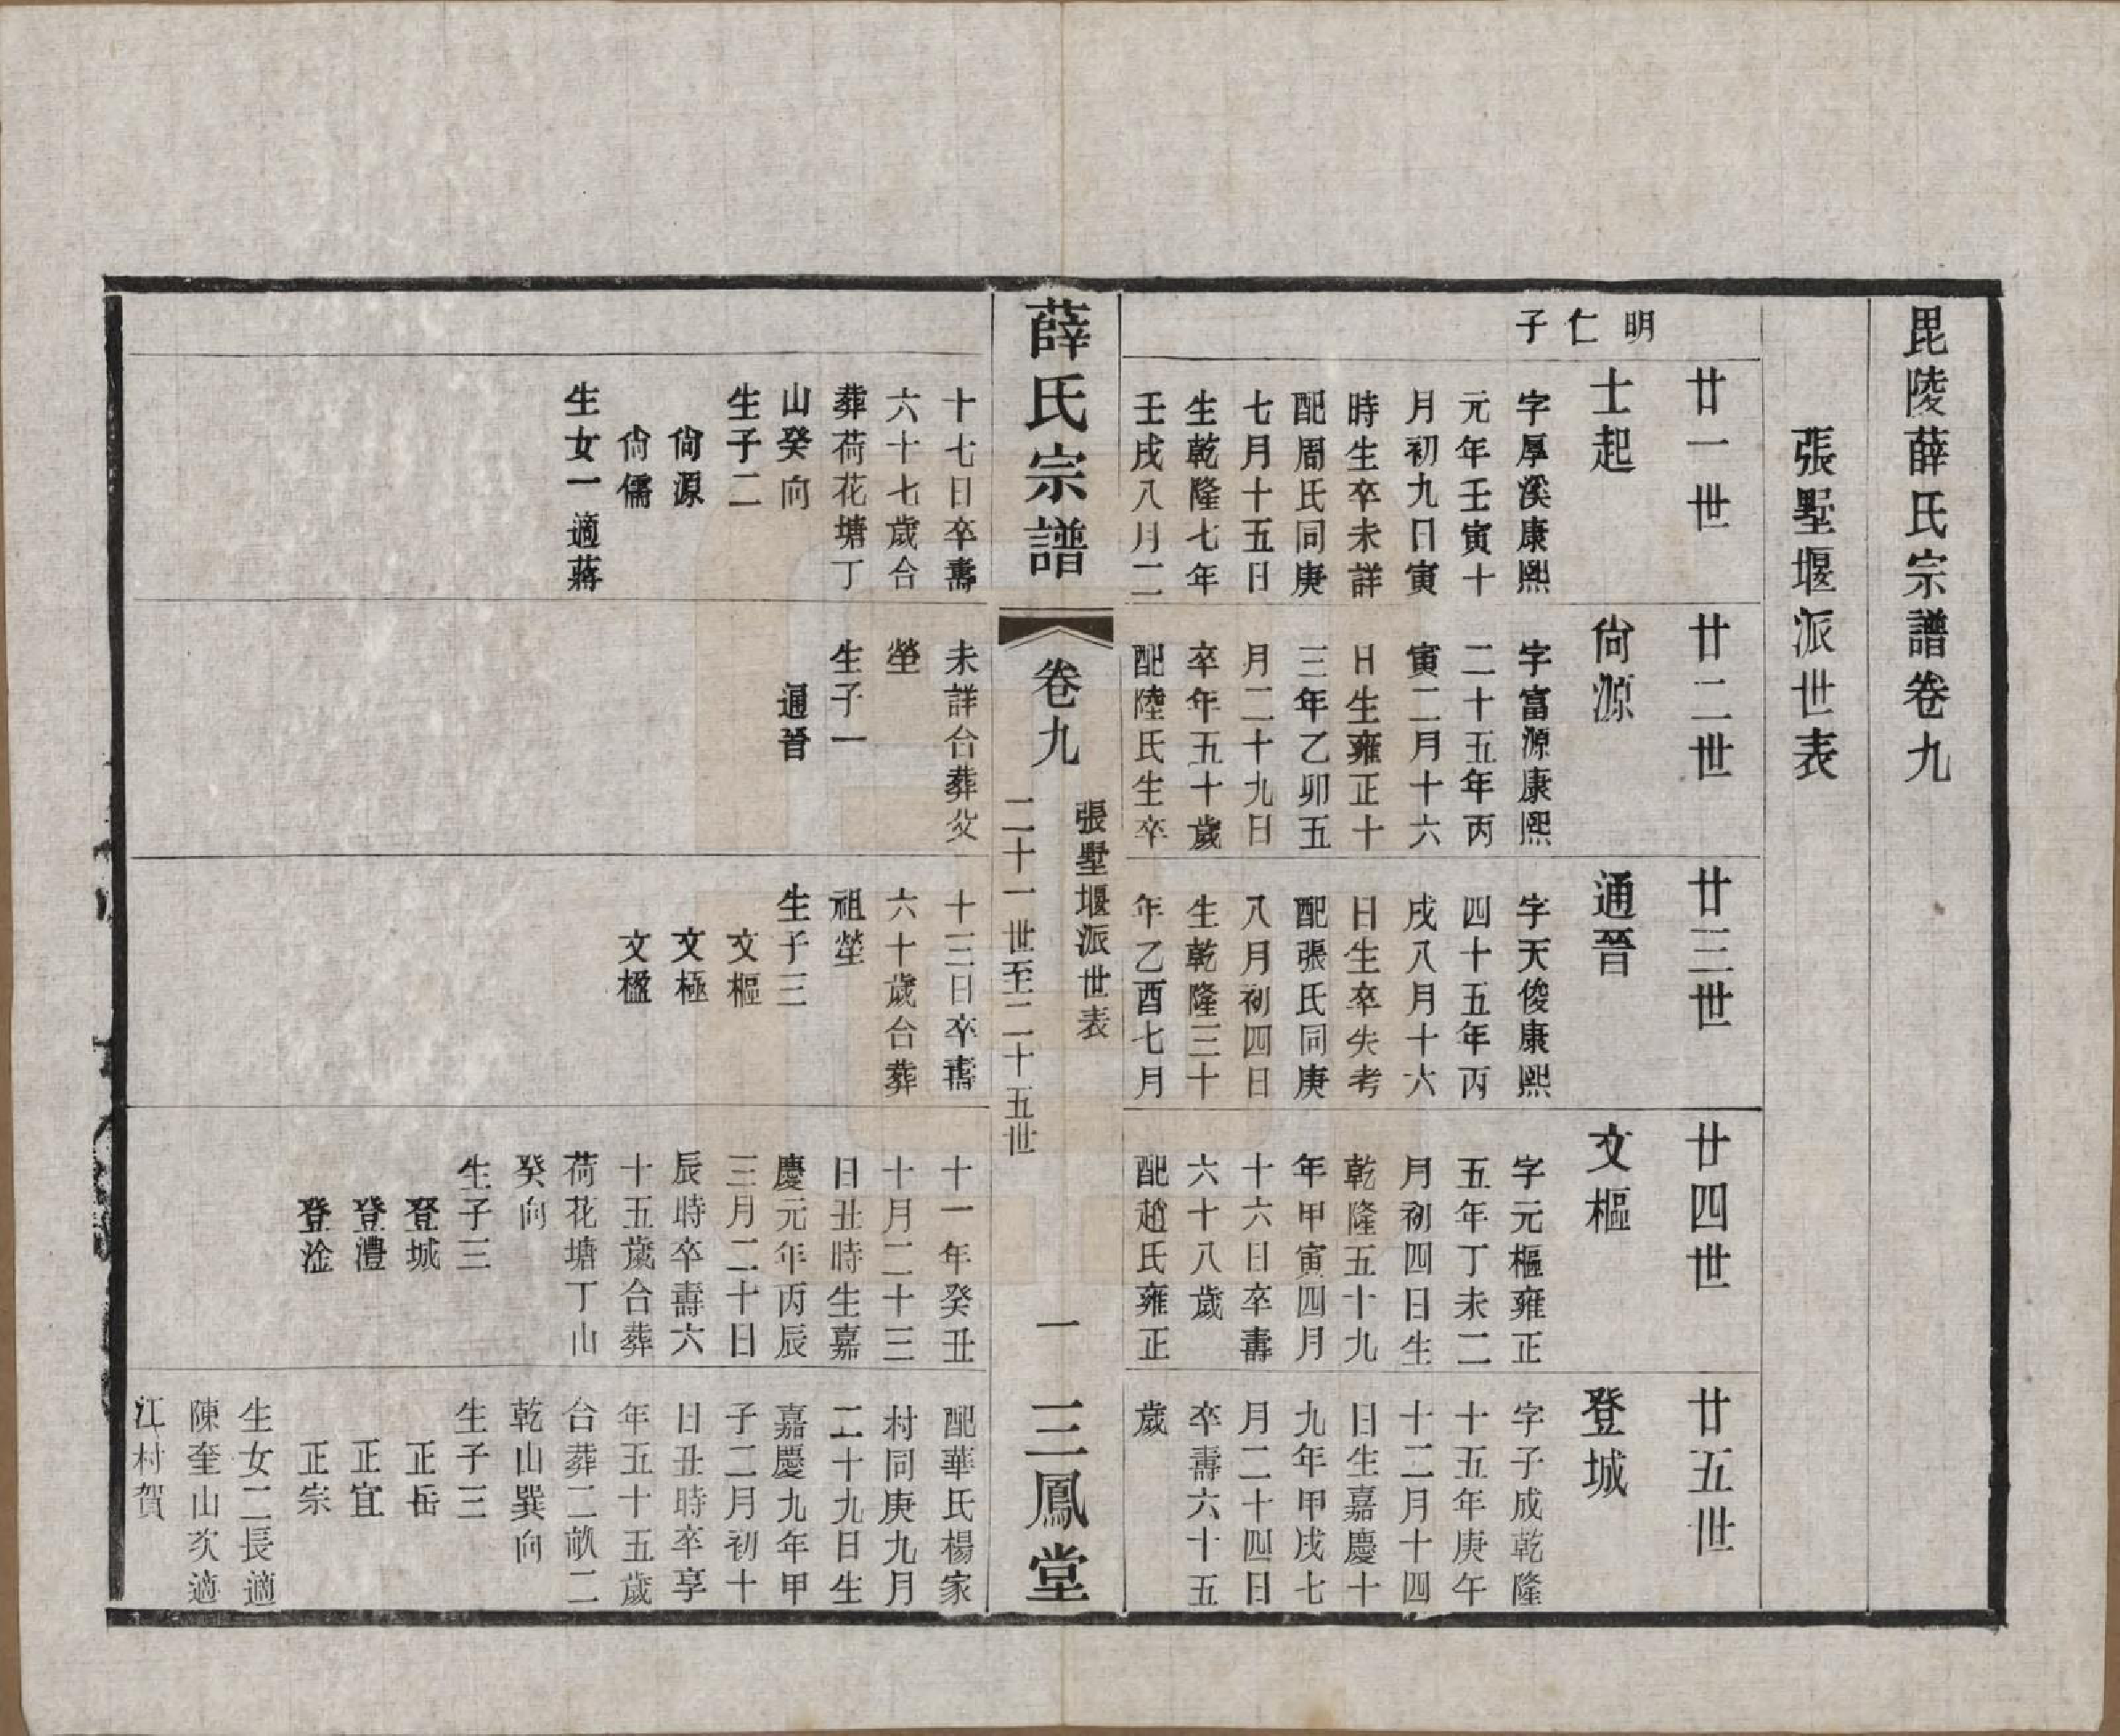 毘陵薛氏宗譜卷九
張墅堰派世表
廿一世
明仁子
士起
字厚溪康熙
元年壬寅十
月初九日寅
時生卒未詳
配周氏同庚
七月十五日
生乾隆七年
壬戌八月二
十七日卒壽
六十七歲合
葬荷花塘丁
山癸向
生子二
尙源
尙儒
生女一適蔣
廿二世
尙源
字富源康熙
二十五年丙
寅二月十六
日生雍正十
三年乙卯五
月二十九日
卒年五十歲
配陸氏生卒
未詳合葬父
塋
生子一
通晉
廿三世
通晉
字天俊康熙
四十五年丙
戌八月十六
日生卒失考
配張氏同庚
八月初四日
生乾隆三十
年乙酉七月
十三日卒壽
六十歲合葬
祖塋
生子三
文樞
文極
文楹
廿四世
文樞
字元樞雍正
五年丁未二
月初四日生
乾隆五十九
年甲寅四月
十六日卒壽
六十八歲
配趙氏雍正
十一年癸丑
十月二十三
日丑時生嘉
慶元年丙辰
三月二十日
辰時卒壽六
十五歲合葬
荷花塘丁山
癸向
生子三
登城
登澧
登淦
廿五世
登城
字子成乾隆
十五年庚午
十二月十四
日生嘉慶十
九年甲戌七
月二十四日
卒壽六十五
歲
配華氏楊家
村同庚九月
二十九日生
嘉慶九年甲
子二月初十
日丑時卒享
年五十五歲
合葬二畝二
乾山巽向
生子三
正岳
正宜
正宗
生女二長適
陳奎山次適
江村賀
薛氏宗譜
卷九
張墅堰派世表
二十一世至二十五世
一
三鳳堂